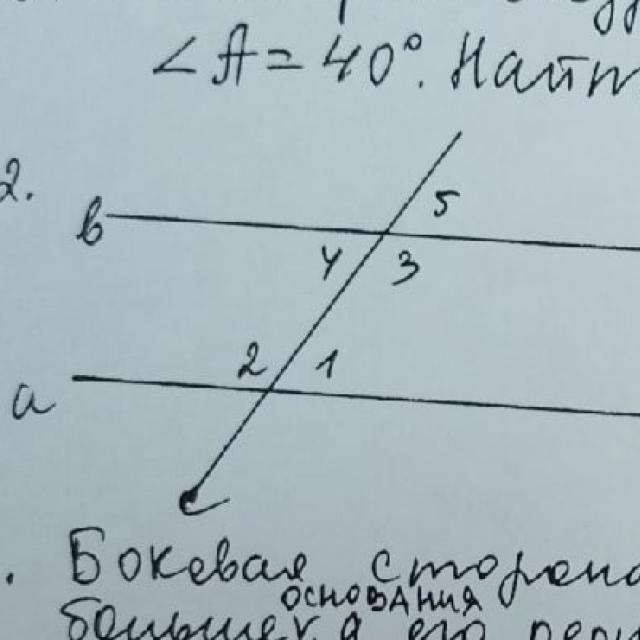 ∠A = 40°. Найти
2.
5
b
4 3
2 1
a
c
. Боковая сторона
основания
больше, а его